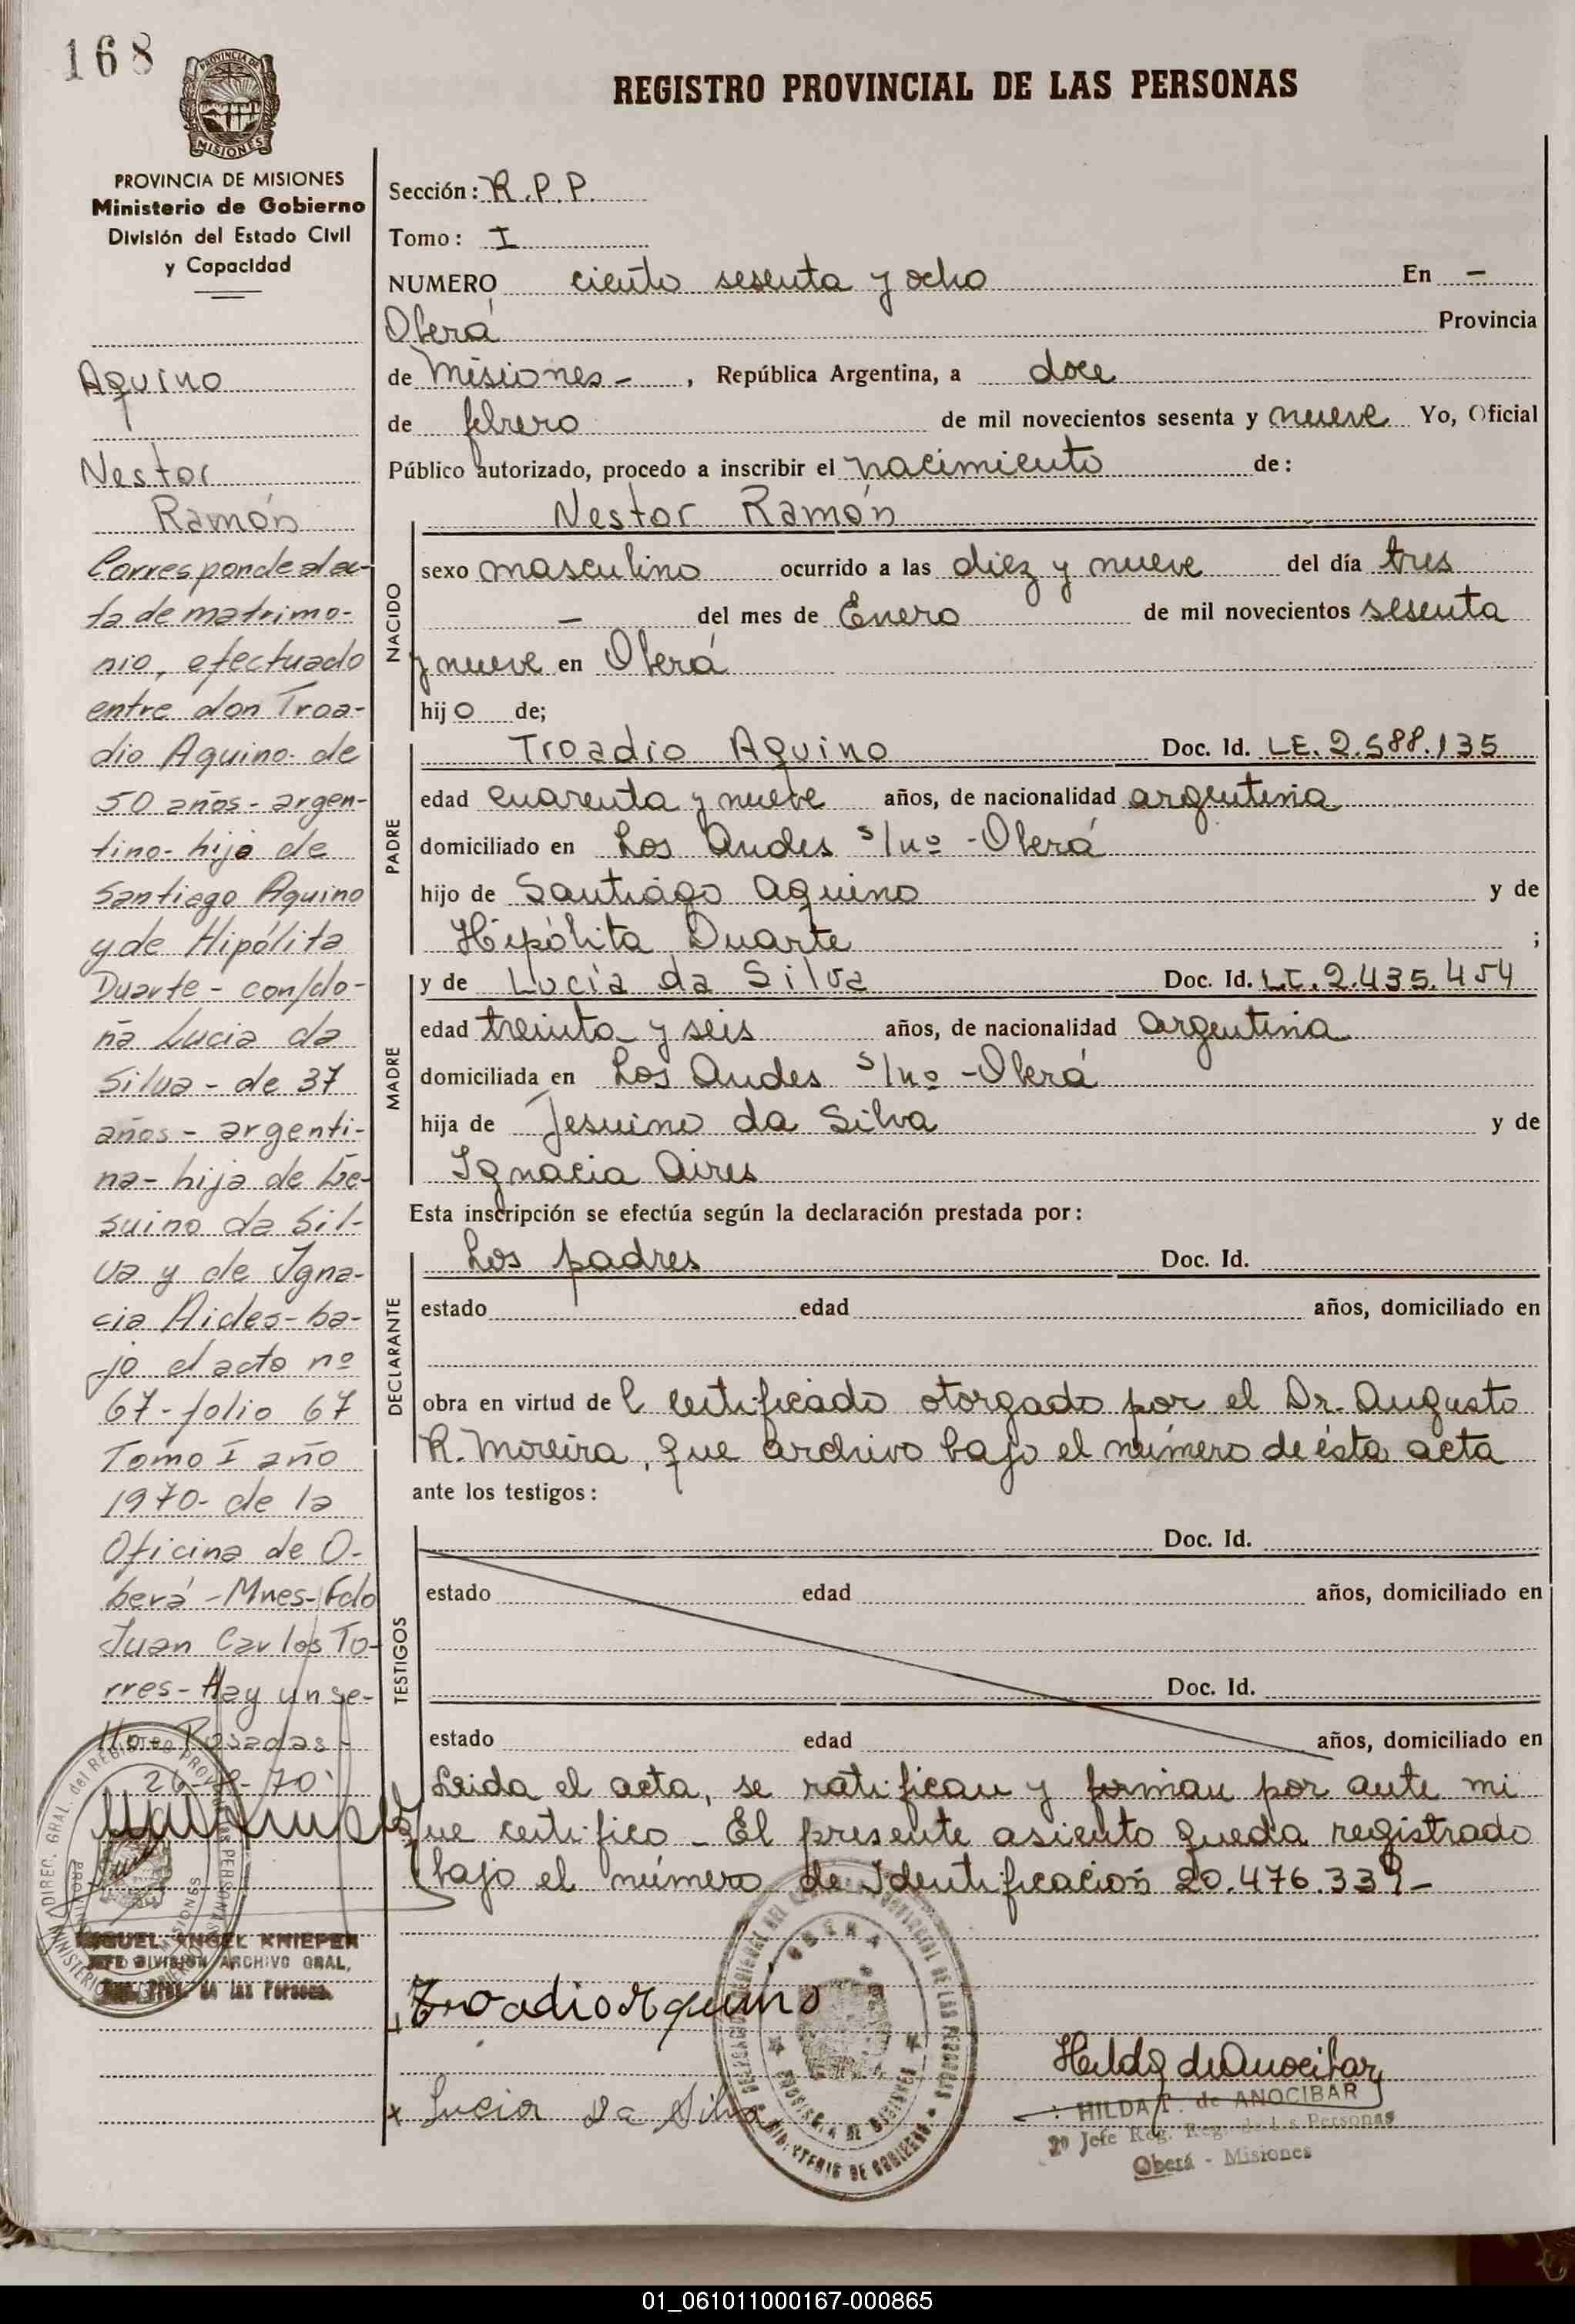 168
PROVINCIA DE
MISIONES
PROVINCIA DE MISIONES
Ministerio de Gobierno
División del Estado Civil
y Capacidad
Aquino
Nestor
Ramón
Corresponde al ac-
ta de matrimo-
nio, efectuado
entre don Troa-
dio Aquino de
50 años - argen-
tino - hijo de
Santiago Aquino
y de Hipólita
Duarte - con/do-
ña Lucia da
Silva - de 37
años - argenti-
na - hija de Je-
suino da Sil-
va y de Igna-
cia Aides - ba-
jo el acta nº
67 - folio 67
Tomo I año
1970 - de la
Oficina de O-
berá - Mnes - Fdo
Juan Carlos To-
rres - Hay un se-
llo - Posadas -
MIGUEL ANGEL KNIEPER
JEFE DIVISION ARCHIVO GRAL.
Reg. Prov. de las Personas.
REGISTRO PROVINCIAL DE LAS PERSONAS
Sección: R.P.P.
Tomo: I
NUMERO ciento sesenta y ocho En -
Oberá Provincia
de Misiones - , República Argentina, a doce
de febrero de mil novecientos sesenta y nueve Yo, Oficial
Público autorizado, procedo a inscribir el nacimiento de:
Nestor Ramón
NACIDO
sexo masculino ocurrido a las diez y nueve del día tres
- del mes de Enero de mil novecientos sesenta
y nueve en Oberá
hijo de;
PADRE
Troadio Aquino Doc. Id. LE. 2.588.135
edad cuarenta y nueve años, de nacionalidad argentina
domiciliado en Los Andes s/nº - Oberá
hijo de Santiago Aquino y de
Hipólita Duarte ;
MADRE
y de Lucía da Silva Doc. Id. LC. 2.435.454
edad treinta y seis años, de nacionalidad argentina
domiciliada en Los Andes s/nº - Oberá
hija de Jesuino da Silva y de
Ignacia Aires
Esta inscripción se efectúa según la declaración prestada por:
DECLARANTE
Los padres Doc. Id.
estado edad años, domiciliado en
obra en virtud de l certificado otorgado por el Dr. Augusto
R. Moreira, que archivo bajo el número de ésta acta
ante los testigos:
TESTIGOS
Doc. Id.
estado edad años, domiciliado en
Doc. Id.
estado edad años, domiciliado en
Leida el acta, se ratifican y firman por ante mi
que certifico - El presente asiento queda registrado
bajo el número de Identificación 20.476.339 -
Troadio Aquino
x Lucia da Silva
Hilda de Anocibar
HILDA T. de ANOCIBAR
2º Jefe Reg. Reg. de las Personas
Oberá - Misiones
01_061011000167-000865